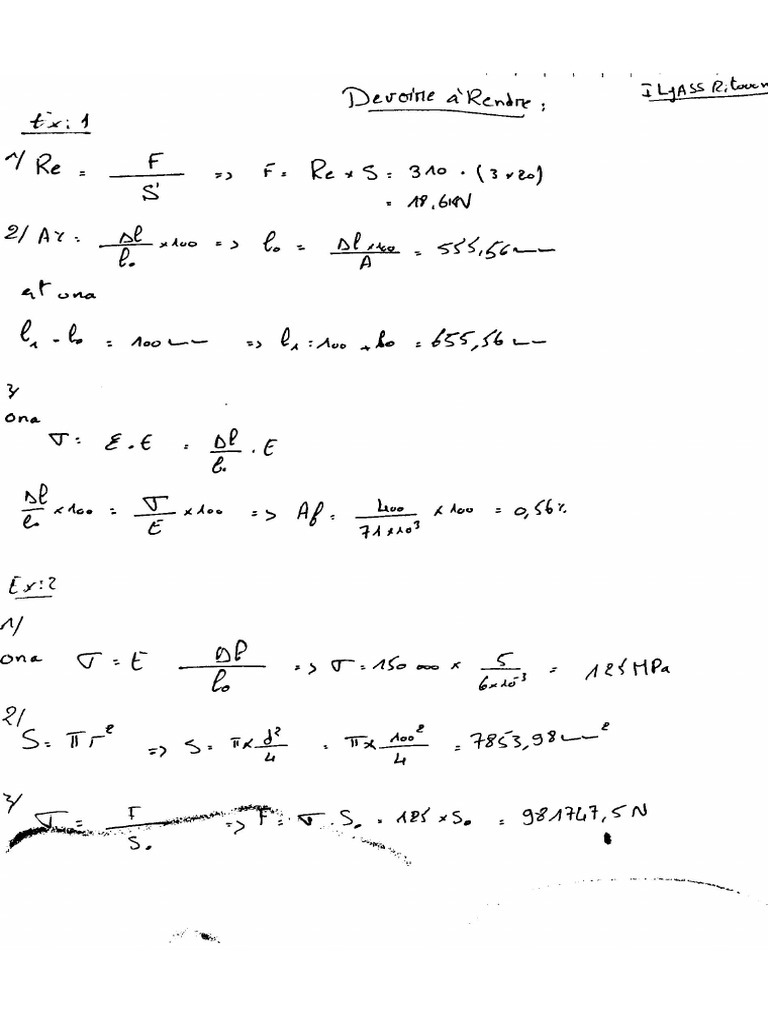 Devoire à Rendre :
ILyASS
Ex : 1
1/ Re = F / S => F = Re × S = 310 . (3 × 20)
= 18,6 kN
2/ A% = Δl / l₀ × 100 => l₀ = Δl × 100 / A = 555,56 mm
et ona
l₁ - l₀ = 100 mm => l₁ = 100 + l₀ = 655,56 mm
3/
ona
σ = ε . E = Δl / l₀ . E
Δl / l₀ × 100 = σ / E × 100 => Af = 400 / 71 × 10³ × 100 = 0,56 %
Ex : 2
1/
ona σ = E Δl / l₀ => σ = 150 000 × 5 / 6 × 10⁻³ = 125 MPa
2/
S = π r² => S = π × d² / 4 = π × 100² / 4 = 7853,98 mm²
3/
σ = F / S₀ => F = σ . S₀ = 125 × S₀ = 981747,5 N